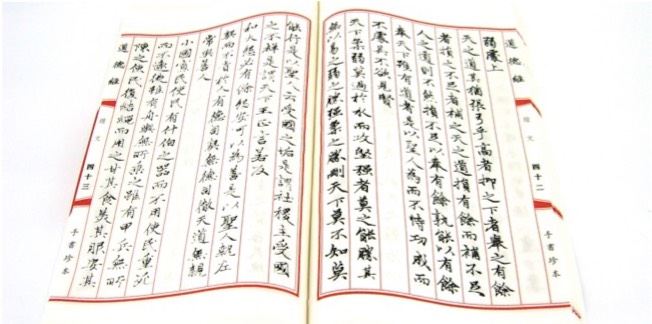 道德經
四十二
手書珍本
弱處上
天之道其猶張弓乎高者抑之下者舉之有餘
者損之不足者補之天之道損有餘而補不足
人之道則不然損不足以奉有餘孰能以有餘
奉天下唯有道者是以聖人為而不恃功成而
不處其不欲見賢
天下柔弱莫過於水而攻堅強者莫之能勝其
無以易之弱之勝強柔之勝剛天下莫不知莫
能行是以聖人云受國之垢是謂社稷主受國
之不祥是謂天下王正言若反
和大怨必有餘怨安可以為善是以聖人執左
契而不責於人有德司契無德司徹天道無親
常與善人
小國寡民使民有什伯之器而不用使民重死
而不遠徙雖有舟輿無所乘之雖有甲兵無所
陳之使民復結繩而用之甘其食美其服安其
道德經
四十三
手書珍本